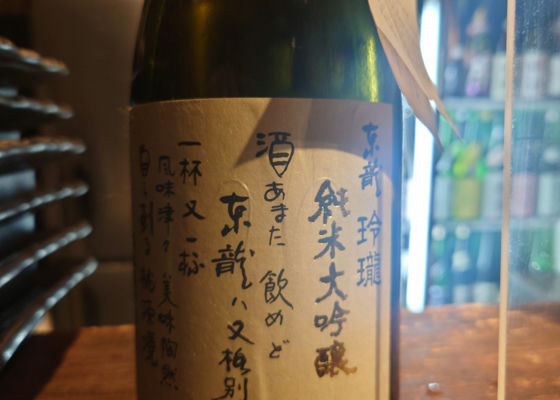 東龍 玲瓏
純米大吟醸
酒あまた 飲めど
东龍ハ又格別
一杯又一杯
風味津々 美味陶然